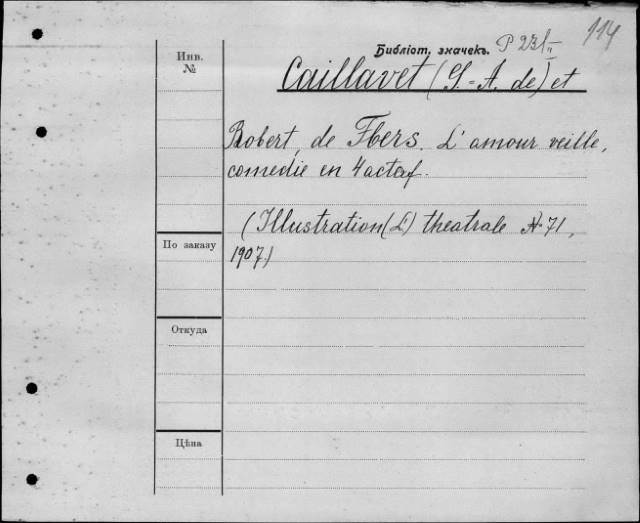 114
Библіот. значекъ. P 231 II
Инв. №
Caillavet (G.-A. de) et
Robert de Flers. L'amour veille,
comedie en 4 actes.
(Illustration (L') theatrale № 71,
1907.)
По заказу
Откуда
Цѣна